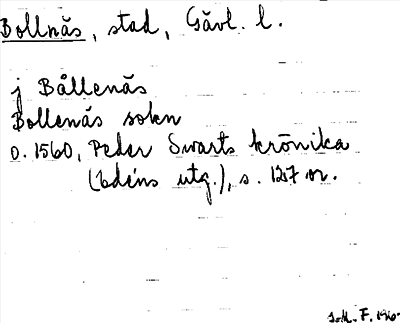 Bollnäs, stad, Gävl. l.
j Bållenäs
Bollenäs sokn
o. 1560, Peder Swarts krönika
(Edéns utg.), s. 127 or.
F. 196